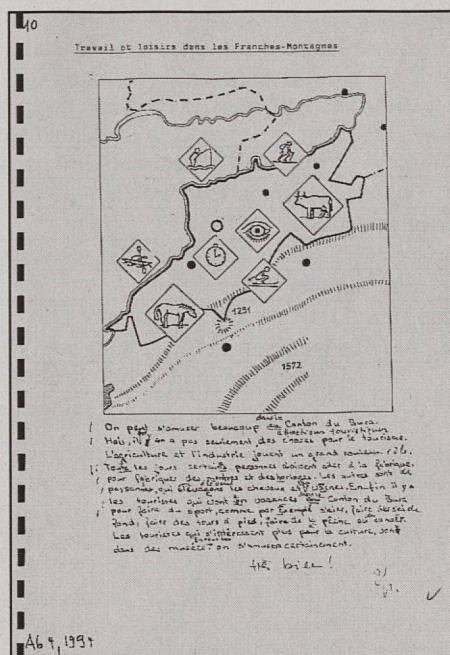 10
Travail et loisirs dans les Franches-Montagnes
1231
1572
dans le
On peut s'amuser beaucoup Canton du Jura.
attractions touristiques
Mais, il y a pas seulement des choses pour le tourisme.
L'agriculture et l'industrie jouent un grand rôle.
Tous les jours certains personnes doivent aller à la fabrique,
pour fabriquer des montres et des horloges. Les autres sont
paysans, qui les chevaux et Enfin il y a
les touristes qui sont en vacances Canton du Jura
pour faire du sport, comme par exemple faire du ski de
fond, faire des tours à pied, faire de la pêche ou canoër.
Les touristes qui s'intéressent plus pour la culture, vont
dans des musées. on s'amuse certainement.
très bien!
Ab 4, 1994